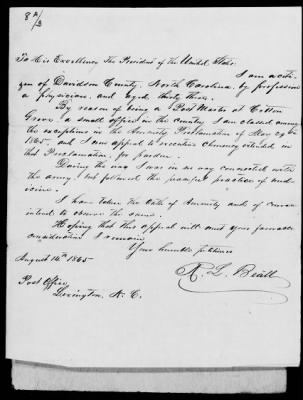 To His Excellency The President of the United States.
I am a citi-
zen of Davidson County, North Carolina, by profession
a physician, and aged thirty three.
By reason of being a Post Master at Cotton
Grove, a small office in the country, I am classed among
the exceptions in the Amnesty Proclamation of May 29th
1865 and I now appeal to executive clemency extended in
that Proclamation, for pardon.
During the war I was in no way connected with
the army, but followed the peaceful practice of med-
icine.
I have taken the Oath of Amnesty and of course
intend to observe the same.
Hoping that this appeal will meet your favorable
consideration I remain
Your humble petitioner
R. L. Beall
August 14th 1865
Post Office,
Lexington, N. C.